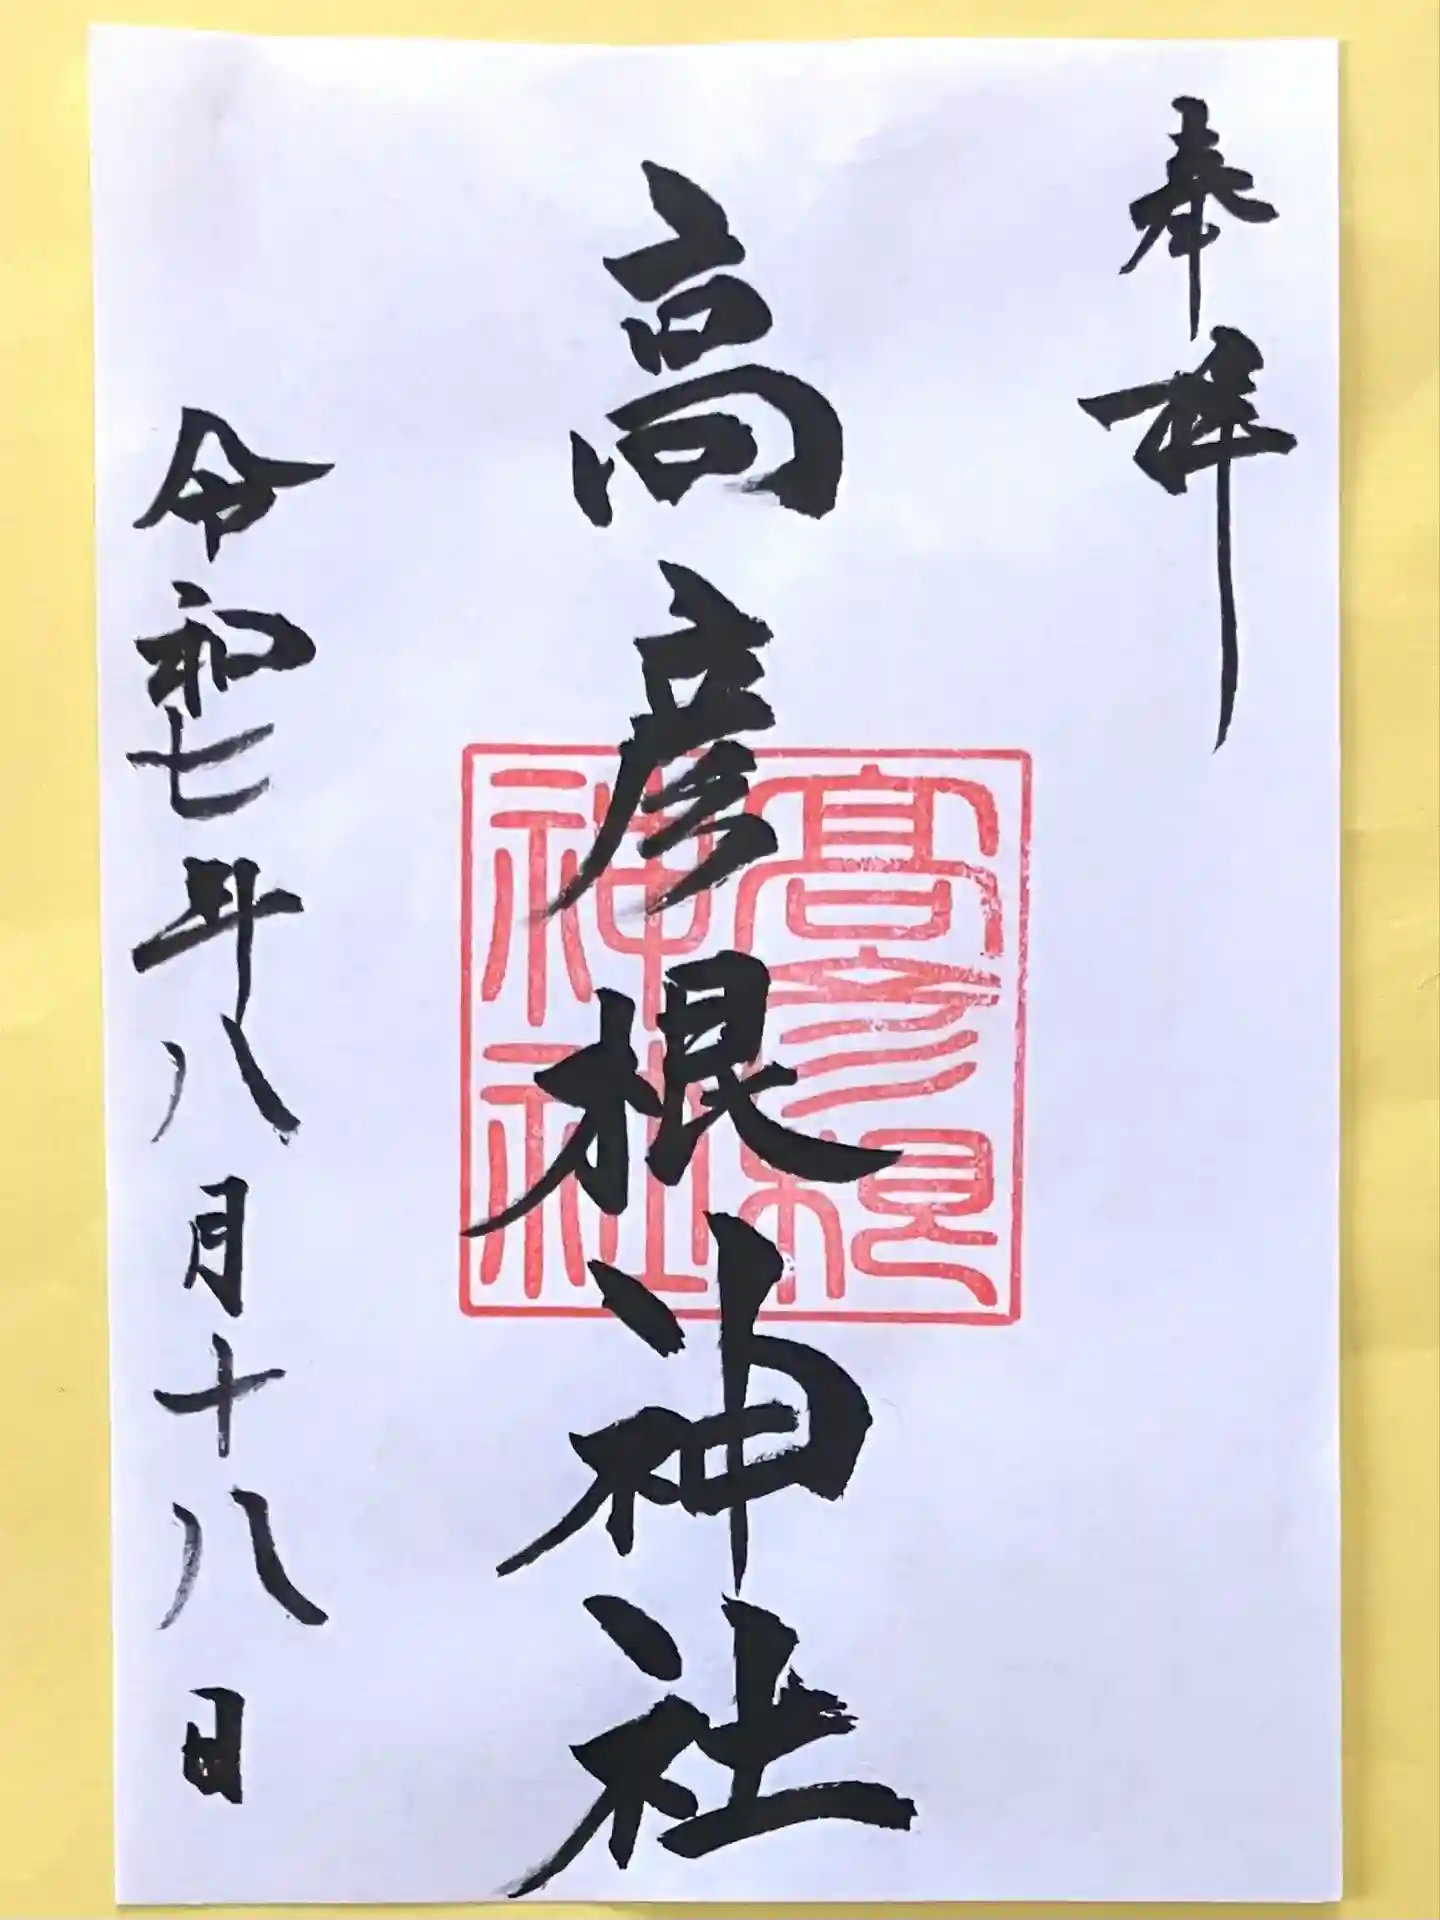 奉拝
高彦根神社
高彦根
神社
令和七年八月十八日